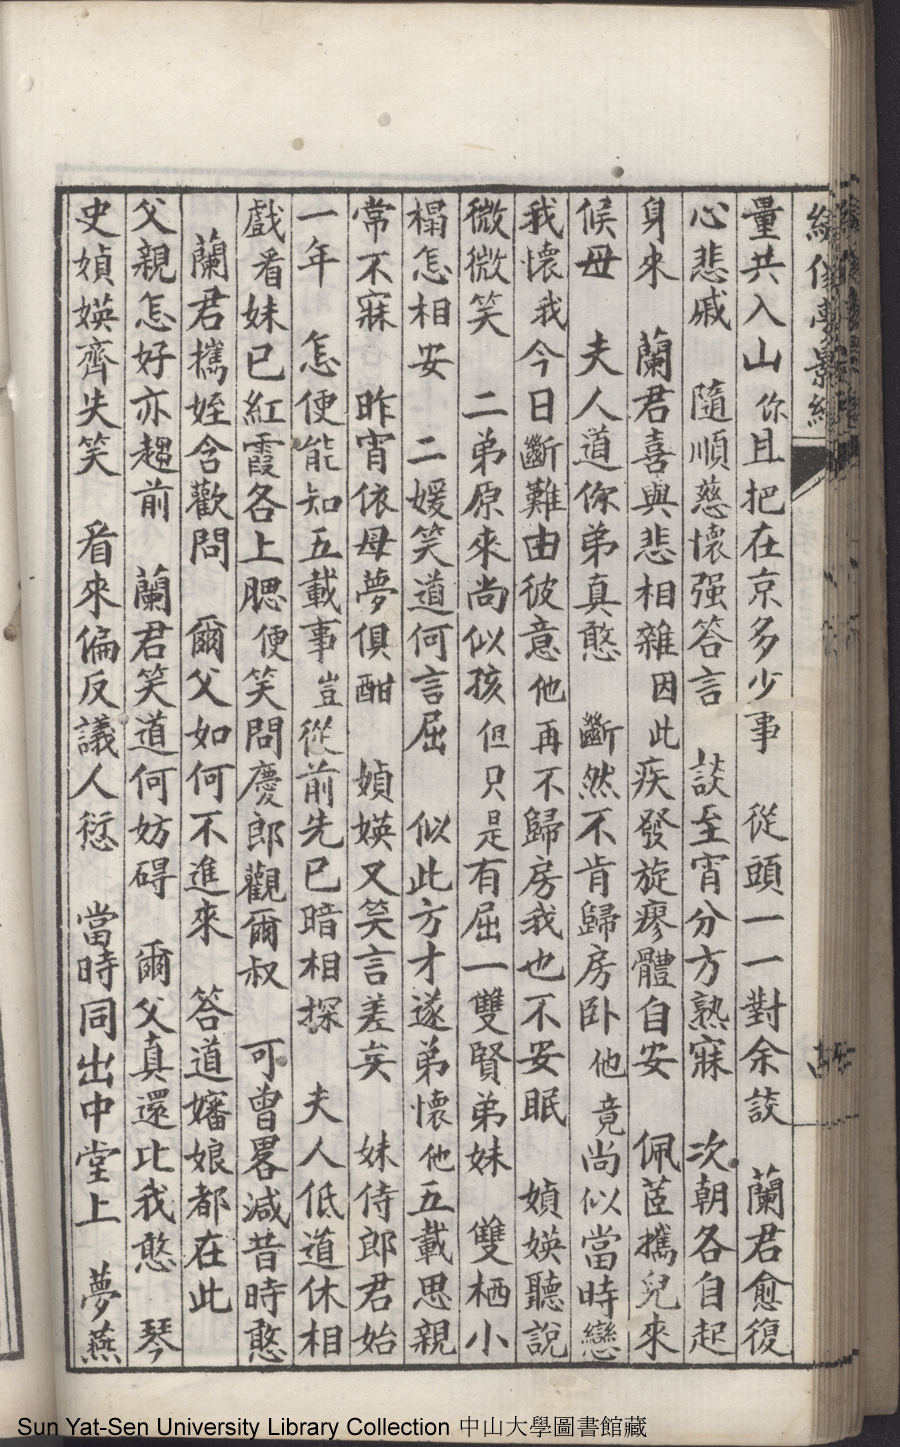 量共入山你且把在京多少事　從頭一一對余談　蘭君愈復
心悲戚　隨順慈懷强答言　談至宵分方熟寐　次朝各自起
身來　蘭君喜與悲相雜因此疾發旋瘳體自安　佩茝攜兒來
候母　夫人道你弟真憨　斷然不肯歸房卧他竟尚似當時戀
我懷我今日斷難由彼意他再不歸房我也不安眠　媜媖聽說
微微笑　二弟原來尚似孩但只是有屈一雙賢弟妹　雙栖小
榻怎相安　二媛笑道何言屈　似此方才遂弟懷他五載思親
常不寐　昨宵依母夢俱酣　媜媖又笑言差矣　妹侍郎君始
一年　怎便能知五載事豈從前先已暗相探　夫人低道休相
戲看妹已紅霞各上腮便笑問慶郎觀爾叔　可曾畧減昔時憨
蘭君攜姪含歡問　爾父如何不進來　答道嬸娘都在此
父親怎好亦趨前　蘭君笑道何妨碍　爾父真還比我憨　琴
史媜媖齊失笑　看來偏反議人愆　當時同出中堂上　夢燕
Sun Yat-Sen University Library Collection 中山大學圖書館藏